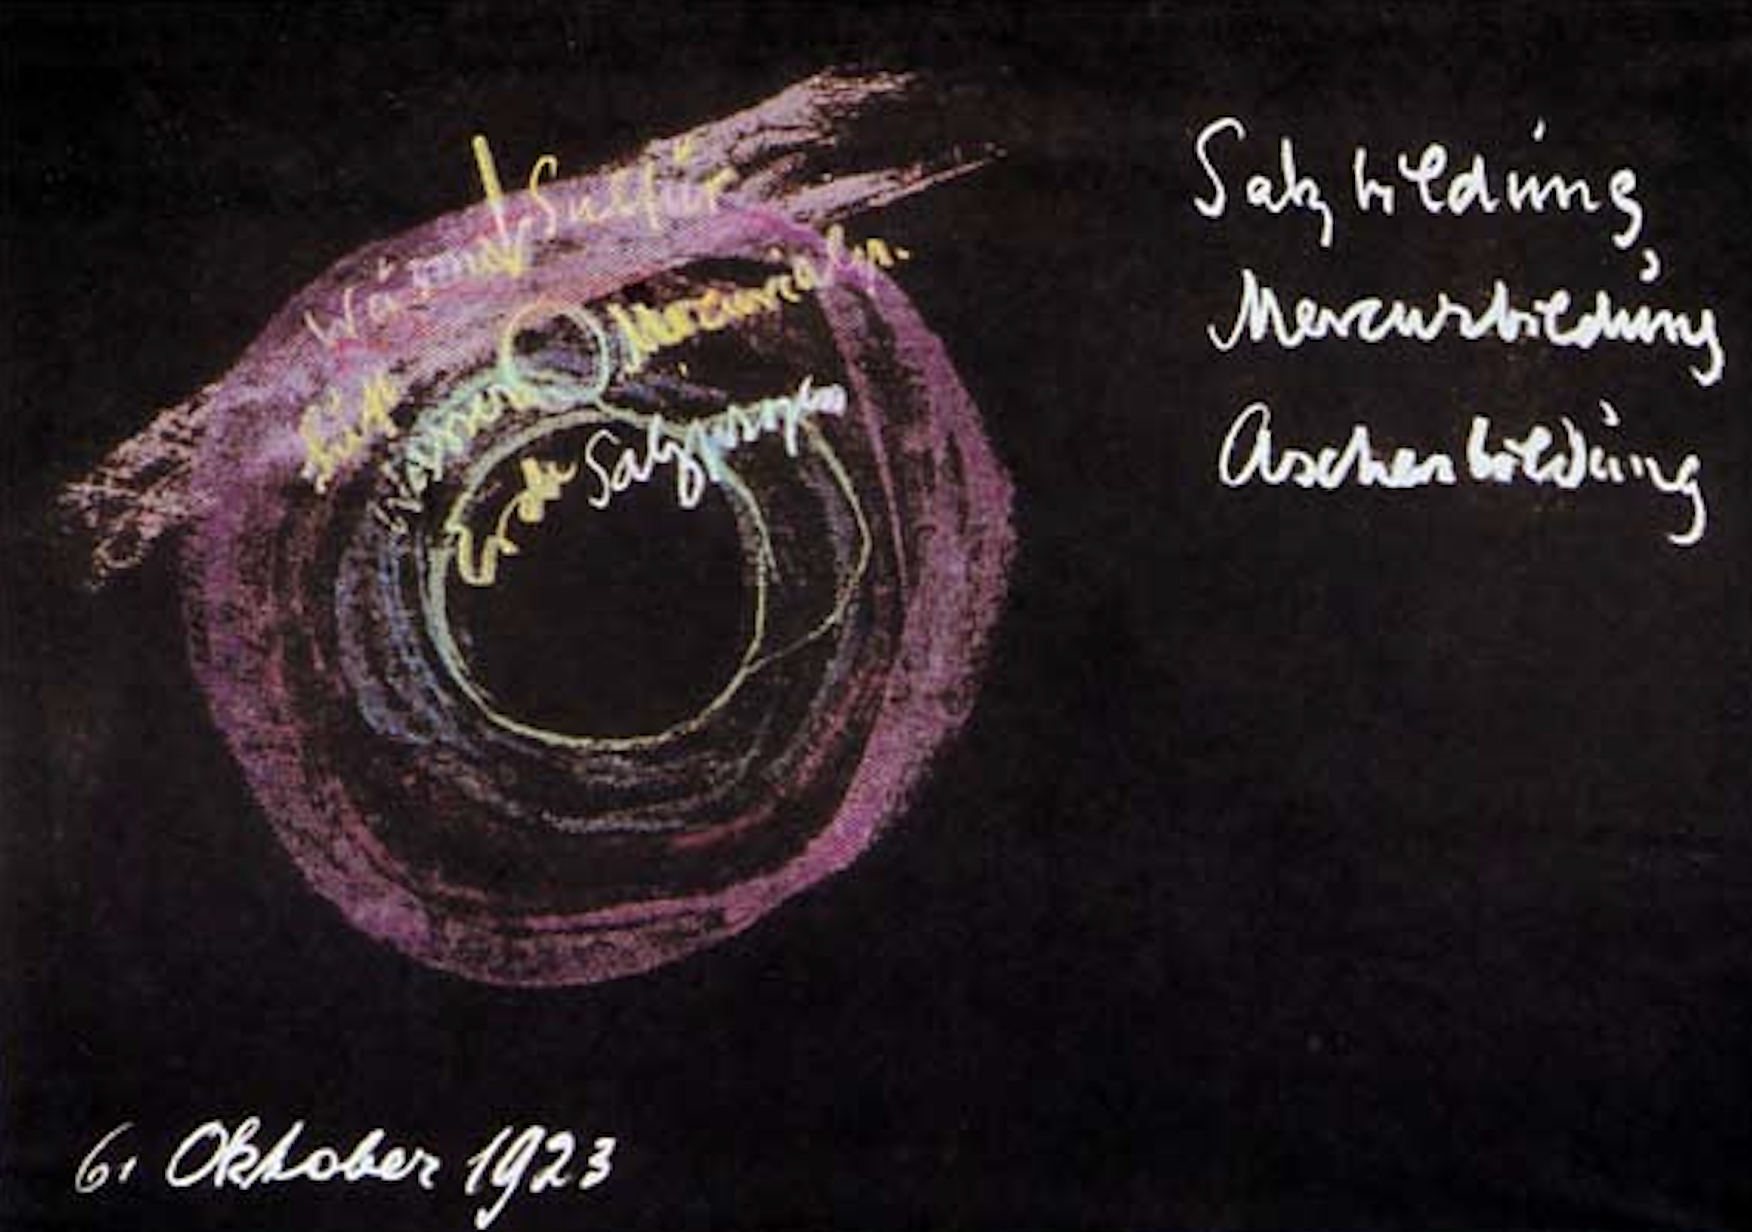 Wärme Sulfur
Luft Mercurialpr.
Wasser
Erde Salzprozess
Salzbildung,
Mercurbildung
Aschenbildung
6. Oktober 1923